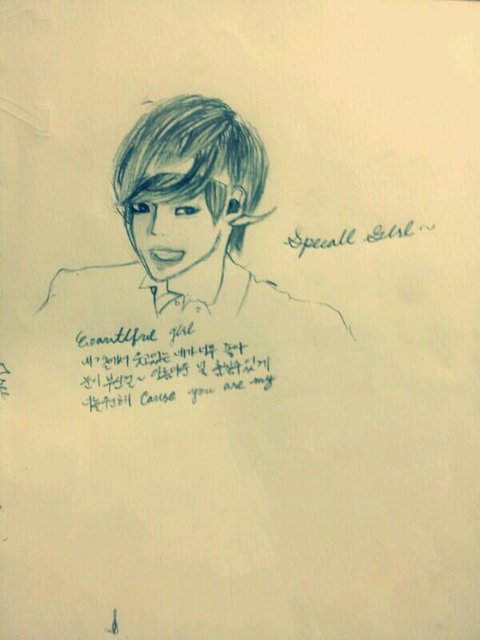 Special Girl~
Beautiful girl
내 곁에서 웃고있는 네가 너무 좋아
눈이 부신걸~ 아름다운 널
나는원해 Cause you are my